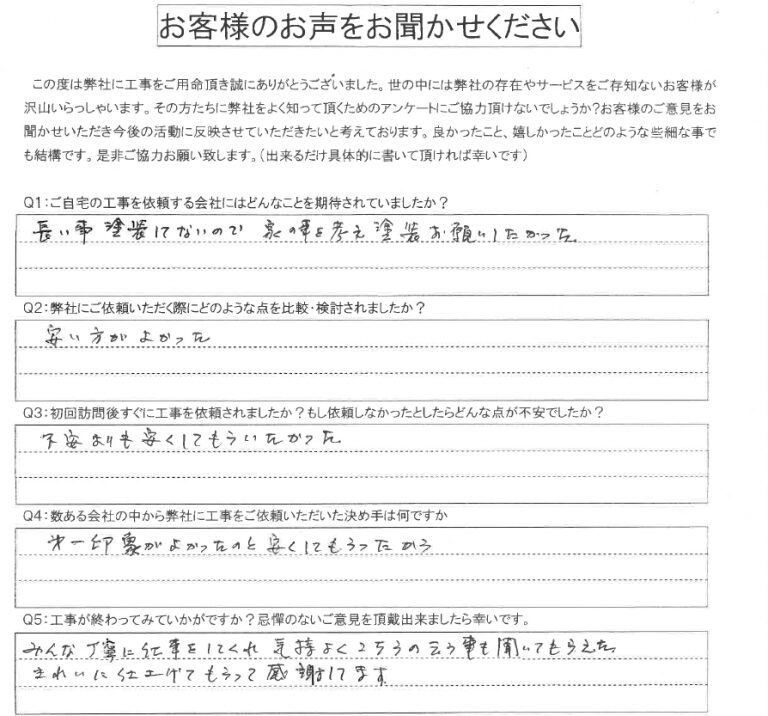 お客様のお声をお聞かせください
この度は弊社に工事をご用命頂き誠にありがとうございました。世の中には弊社の存在やサービスをご存知ないお客様が
沢山いらっしゃいます。その方たちに弊社をよく知って頂くためのアンケートにご協力頂けないでしょうか?お客様のご意見をお
聞かせいただき今後の活動に反映させていただきたいと考えております。良かったこと、嬉しかったことどのような些細な事で
も結構です。是非ご協力お願い致します。(出来るだけ具体的に書いて頂ければ幸いです)
Q1:ご自宅の工事を依頼する会社にはどんなことを期待されていましたか?
長い事塗装してないので 家の事を考え塗装お願いしたかった
Q2:弊社にご依頼いただく際にどのような点を比較・検討されましたか?
安い方がよかった
Q3:初回訪問後すぐに工事を依頼されましたか?もし依頼しなかったとしたらどんな点が不安でしたか?
不安よりも安くしてもらいたかった
Q4:数ある会社の中から弊社に工事をご依頼いただいた決め手は何ですか
第一印象がよかったのと安くしてもらったから
Q5:工事が終わってみていかがですか?忌憚のないご意見を頂戴出来ましたら幸いです。
みんな丁寧に仕事をしてくれ気持よくこちらの云う事も聞いてもらえた
きれいに仕上げてもらって感謝してます